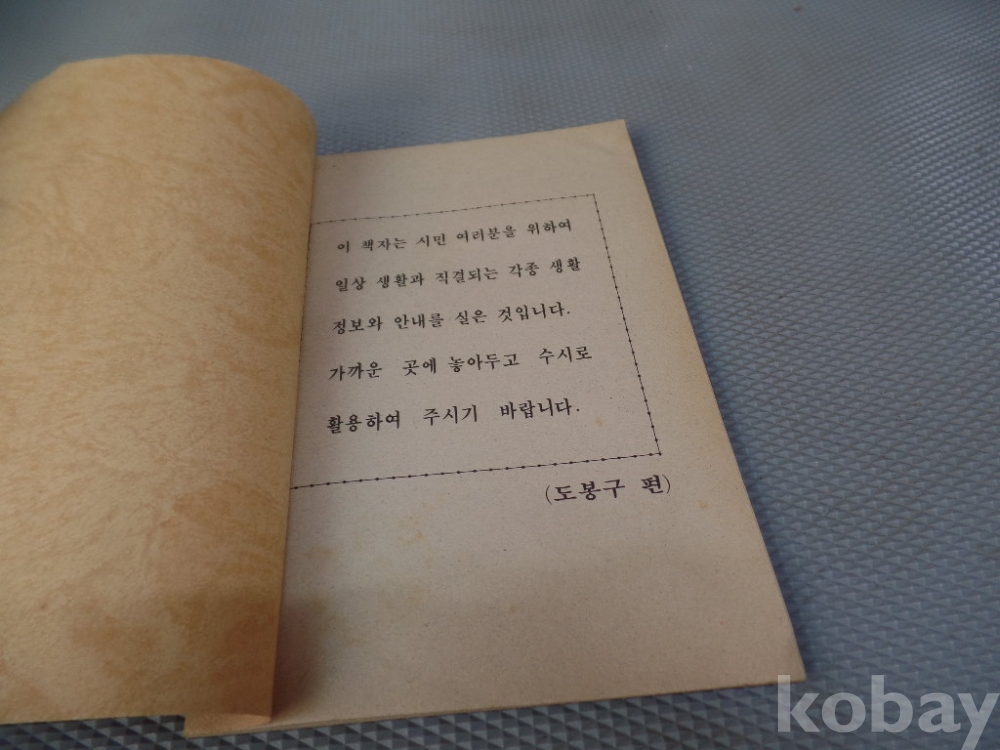 이 책자는 시민 여러분을 위하여
일상 생활과 직결되는 각종 생활
정보와 안내를 실은 것입니다.
가까운 곳에 놓아두고 수시로
활용하여 주시기 바랍니다.
(도봉구 편)
kobay